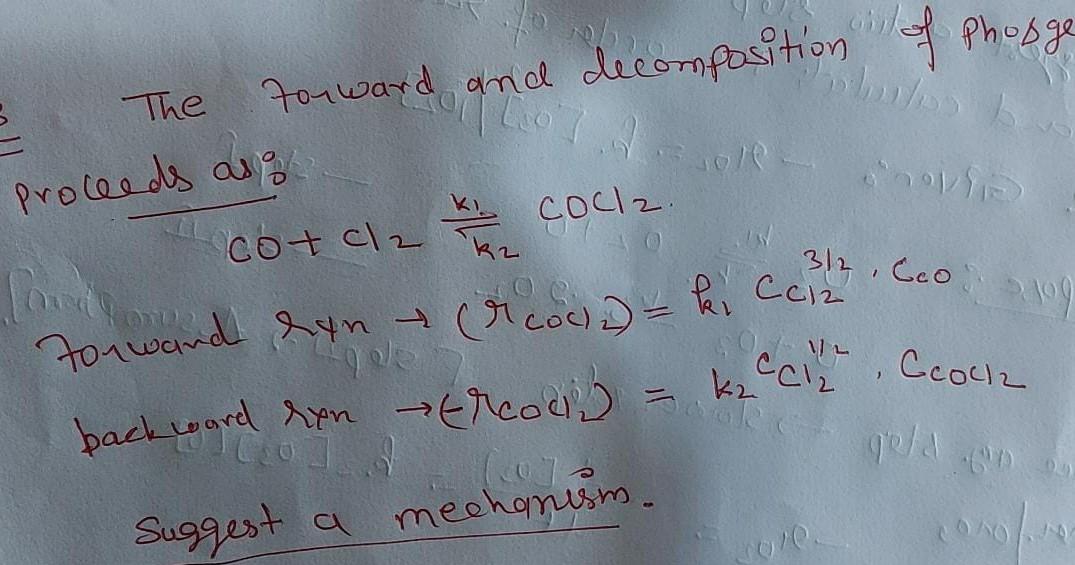 The forward and decomposition of phosge
proceeds as:
CO + Cl2 k1 ⇌ k2 COCl2.
forward rxn → (r COCl2) = k1 C Cl2^3/2 . C CO
backward rxn → (-r COCl2) = k2 C Cl2^1/2 . C COCl2
Suggest a mechanism.